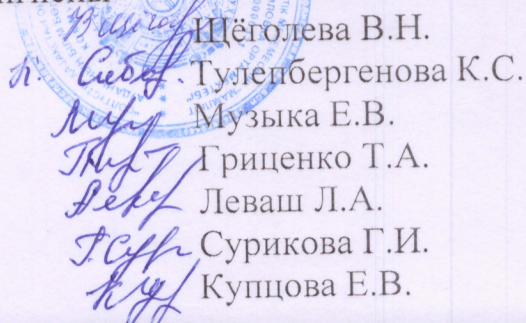 Щёголева В.Н.
Тулепбергенова К.С.
Музыка Е.В.
Гриценко Т.А.
Леваш Л.А.
Сурикова Г.И.
Купцова Е.В.